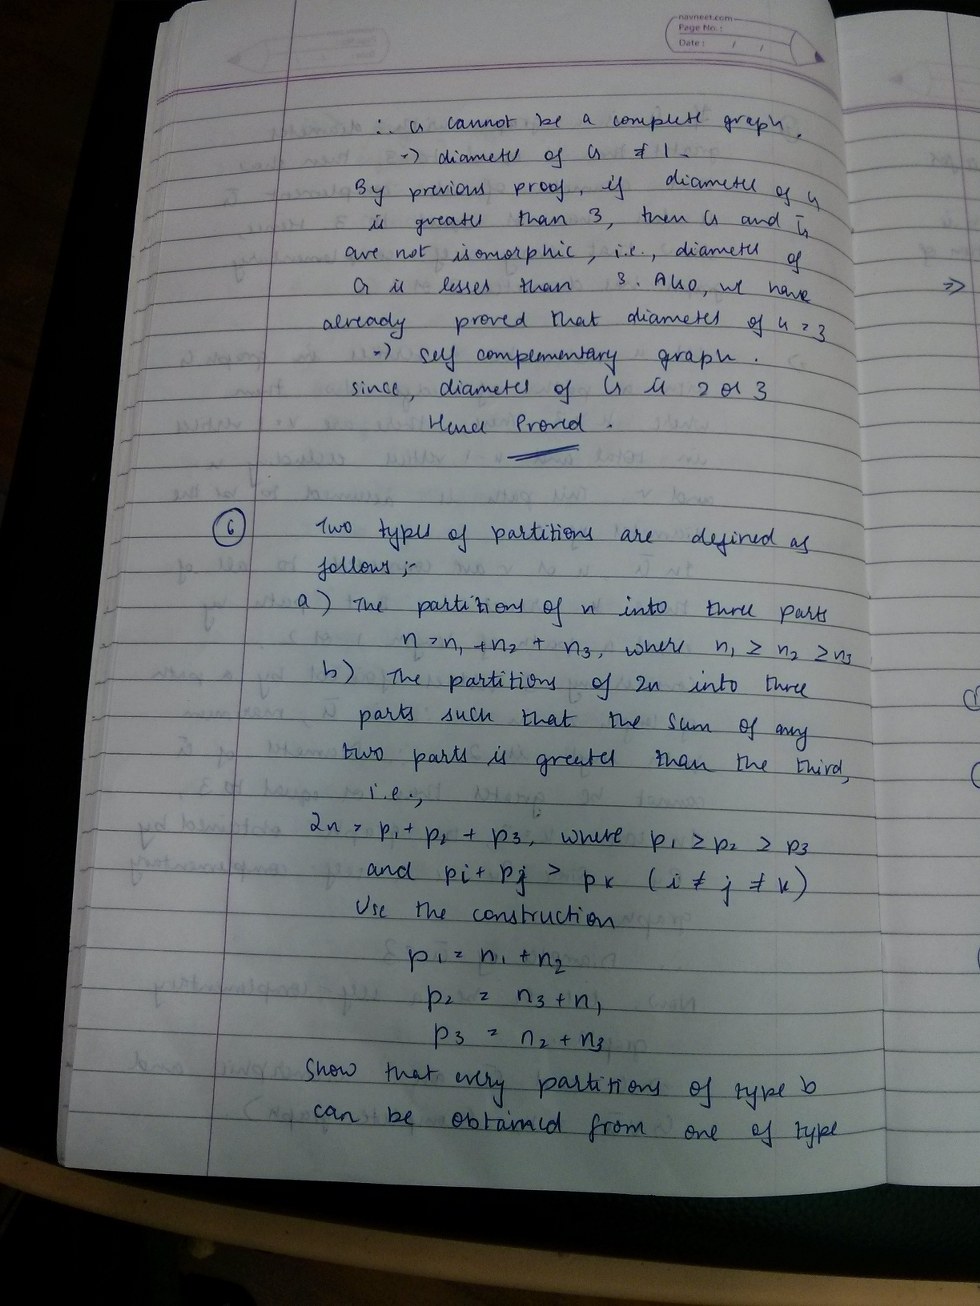 navneet.com
Page No. :
Date : / /
∴ G cannot be a complete graph.
=> diameter of G ≠ 1.
By previous proof, if diameter of G
is greater than 3, then G and G̅
are not isomorphic, i.e., diameter of
G is lesser than 3. Also, we have
already proved that diameter of G = 3
=> self complementary graph.
since, diameter of G is 2 or 3
Hence Proved.
6 Two types of partitions are defined as
follows :-
a) The partitions of n into three parts
n = n1 + n2 + n3, where n1 ≥ n2 ≥ n3
b) The partitions of 2n into three
parts such that the sum of any
two parts is greater than the third,
i.e.,
2n = p1 + p2 + p3, where p1 ≥ p2 ≥ p3
and pi + pj > pk (i ≠ j ≠ k)
Use the construction
p1 = n1 + n2
p2 = n3 + n1
p3 = n2 + n3
Show that every partitions of type b
can be obtained from one of type
=>